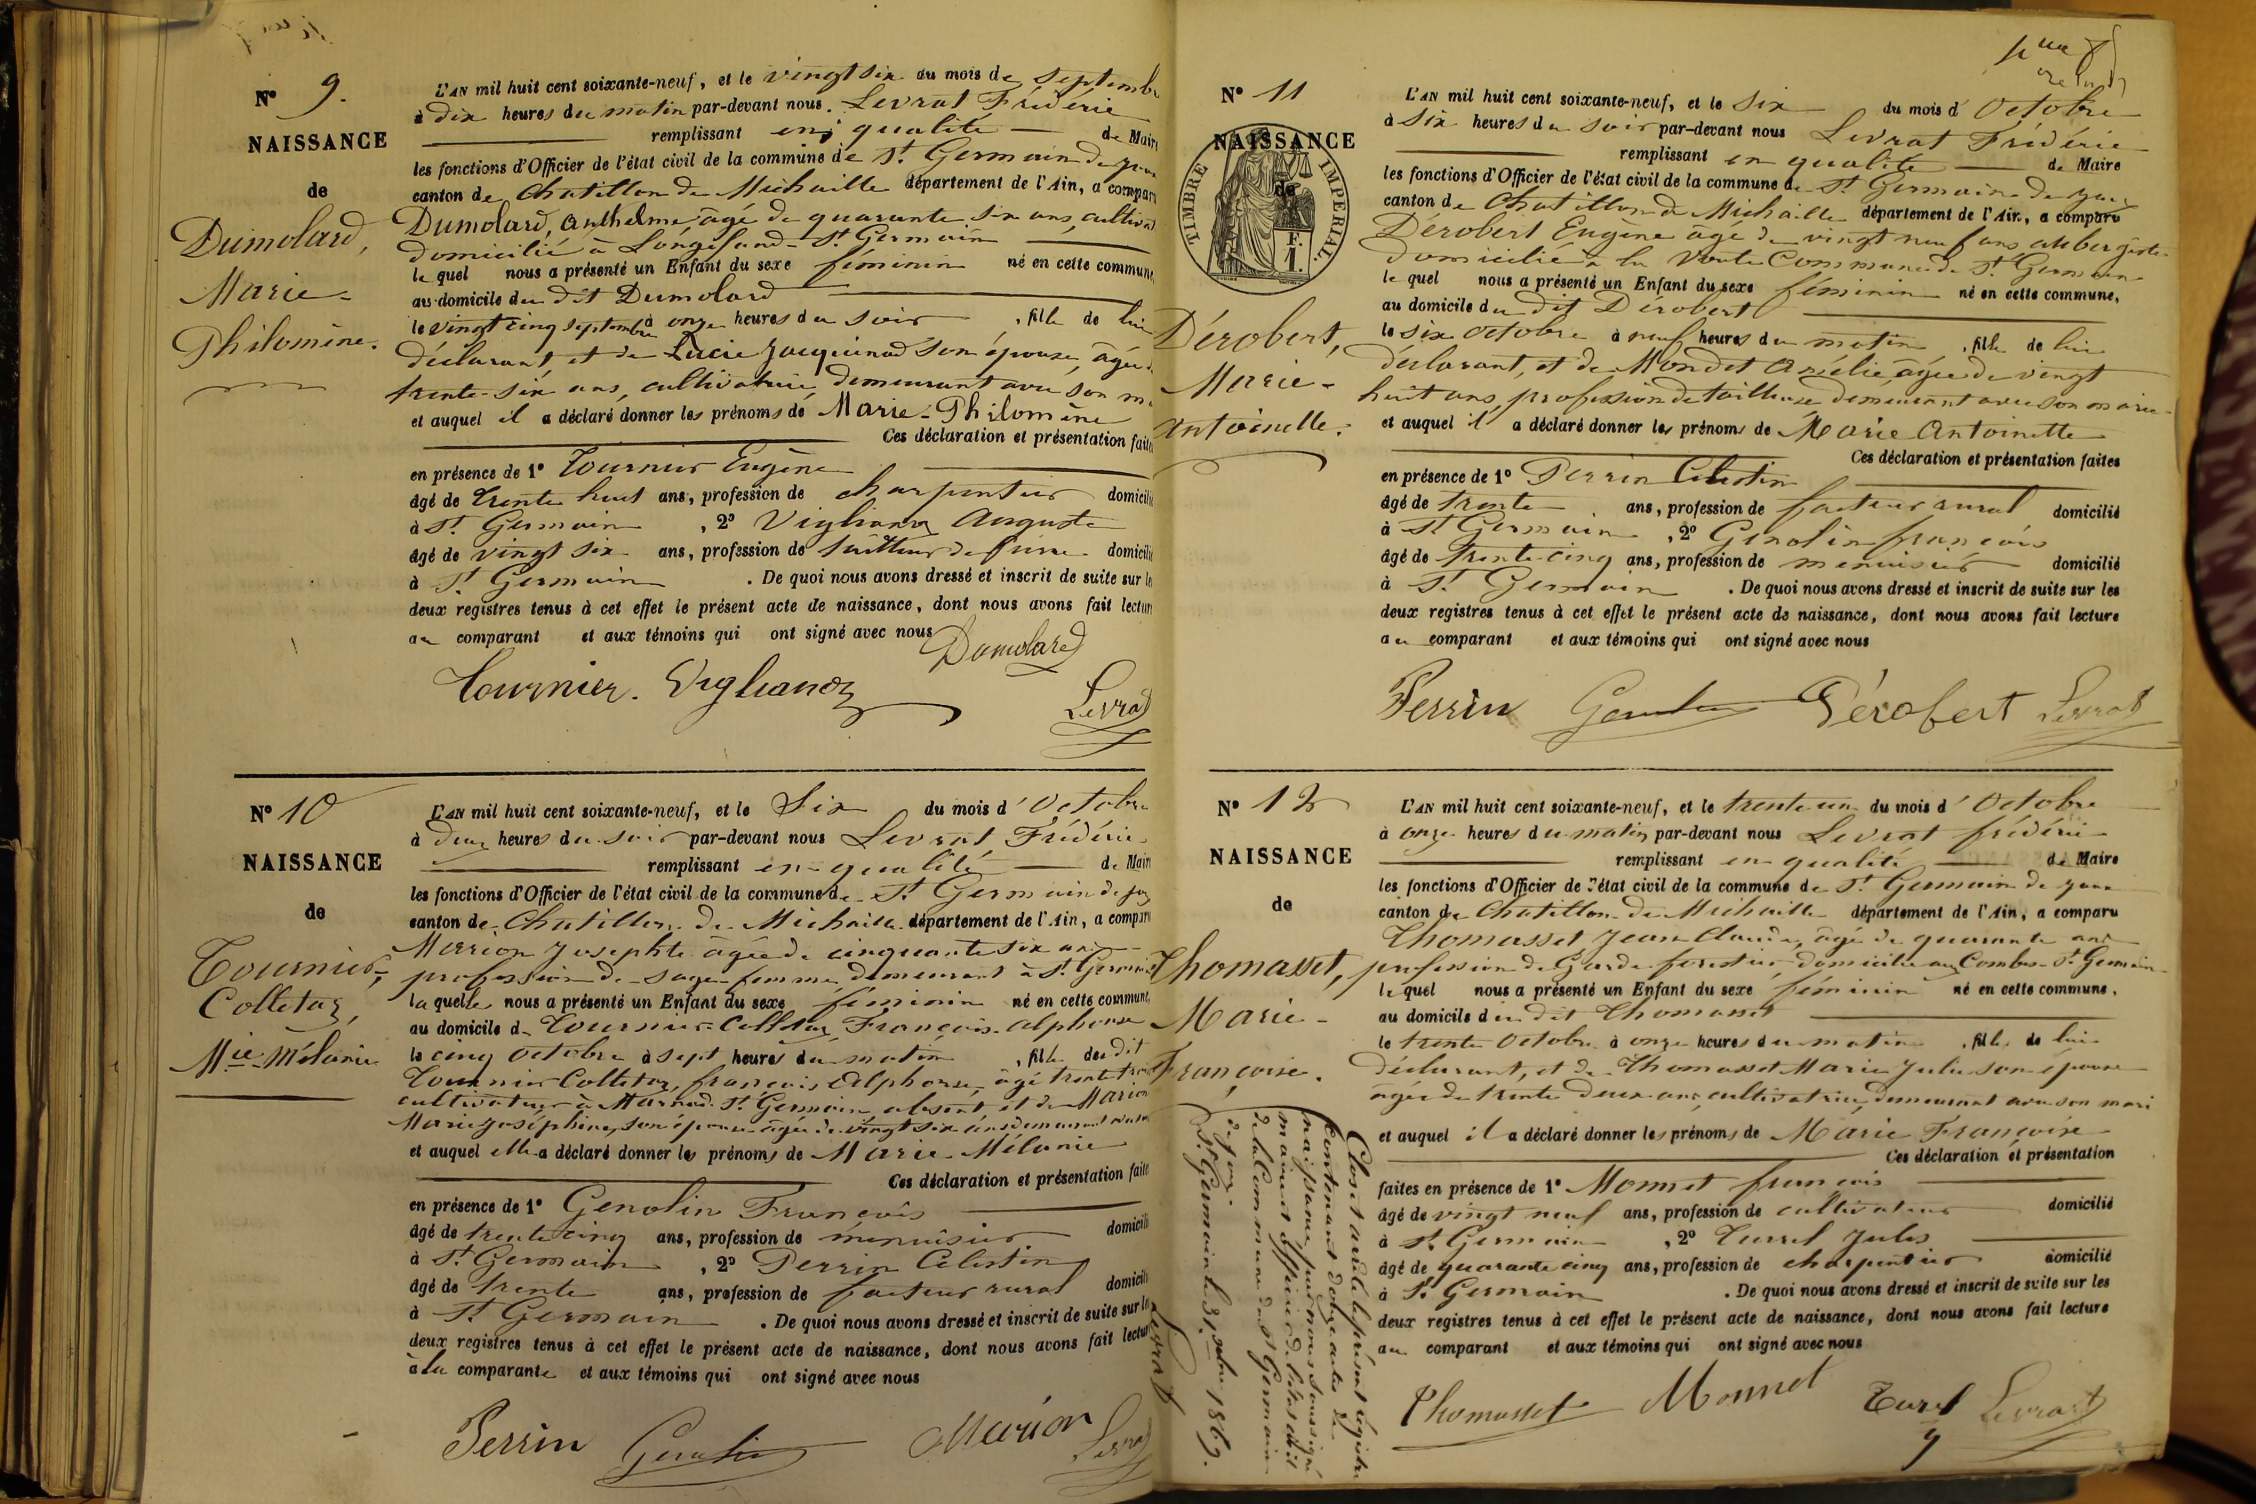 N° 9.
NAISSANCE
de
Dumolard,
Marie-
Philomène.
L'AN mil huit cent soixante-neuf, et le vingt six du mois de septembre
à dix heures du matin par-devant nous Levrat Frédéric
remplissant en qualité de Maire
les fonctions d'Officier de l'état civil de la commune de St. Germain de
canton de Chatillon de Michaille département de l'Ain, a comparu
Dumolard, Anthelme âgé de quarante six ans, cultivat
domicilié à Longefand-St. Germain
le quel nous a présenté un Enfant du sexe féminin né en cette commune,
au domicile du dit Dumolard
le vingt cinq septembre à onze heures du soir, fille de lui
déclarant, et de Lucie Jacquinod son épouse, âgée de
trente-six ans, cultivatrice, demeurant avec son
et auquel il a déclaré donner les prénoms de Marie-Philomène
Ces déclaration et présentation faites
en présence de 1° Tournier Eugène
âgé de trente huit ans, profession de charpentier domicilié
à St. Germain, 2° Viglianoz Auguste
âgé de vingt six ans, profession de domicilié
à St. Germain. De quoi nous avons dressé et inscrit de suite sur les
deux registres tenus à cet effet le présent acte de naissance, dont nous avons fait lecture
au comparant et aux témoins qui ont signé avec nous
Dumolard
Tournier. Viglianoz
Levrat
N° 10
NAISSANCE
de
Tournier-
Colletaz,
Mie-Mélanie
L'AN mil huit cent soixante-neuf, et le Six du mois d'Octobre
à deux heures du soir par-devant nous Levrat, Frédéric
remplissant en qualité de Maire
les fonctions d'Officier de l'état civil de la commune de St. Germain de Joux
canton de Chatillon de Michaille département de l'Ain, a comparu
Marion Josephte âgée de cinquante six ans
profession de sage-femme, demeurant à St. Germain
la quelle nous a présenté un Enfant du sexe féminin né en cette commune,
au domicile de Tournier-Colletaz François-Alphonse
le cinq Octobre à sept heures du matin, fille du dit
Tournier Colletaz, françois Alphonse âgé trente trois
cultivateur à Marnod St. Germain, absent, et de Marion
Marie Joséphine, son épouse âgée de vingt six ans demeurant
et auquel elle a déclaré donner les prénoms de Marie-Mélanie
Ces déclaration et présentation faites
en présence de 1° Genolin François
âgé de trente cinq ans, profession de menuisier domicilié
à St. Germain, 2° Perrin Célestin
âgé de trente ans, profession de facteur rural domicilié
à St. Germain. De quoi nous avons dressé et inscrit de suite sur les
deux registres tenus à cet effet le présent acte de naissance, dont nous avons fait lecture
à la comparante et aux témoins qui ont signé avec nous
Perrin Genolin Marion Levrat
N° 11
NAISSANCE
de
TIMBRE IMPERIAL.
F.
1.
Dérobert,
Marie-
Antoinette.
L'AN mil huit cent soixante-neuf, et le Six du mois d'Octobre
à Six heures du soir par-devant nous Levrat Frédéric
remplissant en qualité de Maire
les fonctions d'Officier de l'état civil de la commune de St. Germain de Joux
canton de Chatillon de Michaille département de l'Ain, a comparu
Dérobert Eugène âgé de vingt neuf ans, aubergiste
domicilié à la Voute Commune de St. Germain
le quel nous a présenté un Enfant du sexe féminin né en cette commune,
au domicile du dit Dérobert
le six octobre à neuf heures du matin, fille de lui
déclarant, et de Mondet Amélie, âgée de vingt
huit ans, profession de tailleuse demeurant avec son mari
et auquel il a déclaré donner les prénoms de Marie Antoinette
Ces déclaration et présentation faites
en présence de 1° Perrin Célestin
âgé de trente ans, profession de facteur rural domicilié
à St Germain, 2° Genolin françois
âgé de trente cinq ans, profession de menuisier domicilié
à St. Germain. De quoi nous avons dressé et inscrit de suite sur les
deux registres tenus à cet effet le présent acte de naissance, dont nous avons fait lecture
au comparant et aux témoins qui ont signé avec nous
Perrin Genolin Dérobert Levrat
N° 12
NAISSANCE
de
Thomasset,
Marie-
Françoise.
L'AN mil huit cent soixante-neuf, et le trente un du mois d'Octobre
à onze heures du matin par-devant nous Levrat frédéric
remplissant en qualité de Maire
les fonctions d'Officier de l'état civil de la commune de St. Germain de Joux
canton de Chatillon de Michaille département de l'Ain, a comparu
Thomasset Jean Claude, âgé de quarante ans
profession de Garde-forestier, domicilié aux Combes-St. Germain
le quel nous a présenté un Enfant du sexe féminin né en cette commune,
au domicile du dit Thomasset
le trente Octobre à onze heures du matin, fille de lui
déclarant, et de Thomasset Marie Julie son épouse
âgée de trente deux ans, cultivatrice, demeurant avec son mari
et auquel il a déclaré donner les prénoms de Marie Françoise
Ces déclaration et présentation
faites en présence de 1° Monnet françois
âgé de vingt neuf ans, profession de cultivateur domicilié
à St. Germain, 2° Turrel Jules
âgé de quarante cinq ans, profession de charpentier domicilié
à St. Germain. De quoi nous avons dressé et inscrit de suite sur les
deux registres tenus à cet effet le présent acte de naissance, dont nous avons fait lecture
au comparant et aux témoins qui ont signé avec nous
Thomasset Monnet Turel Levrat
Clos et arrêté le présent registre
contenant douze actes de
naissance, par nous soussigné
maire et officier de l'état civil
de la Commune de St Germain
de Joux.
St. Germain le 31. xbre 1869.
Levrat